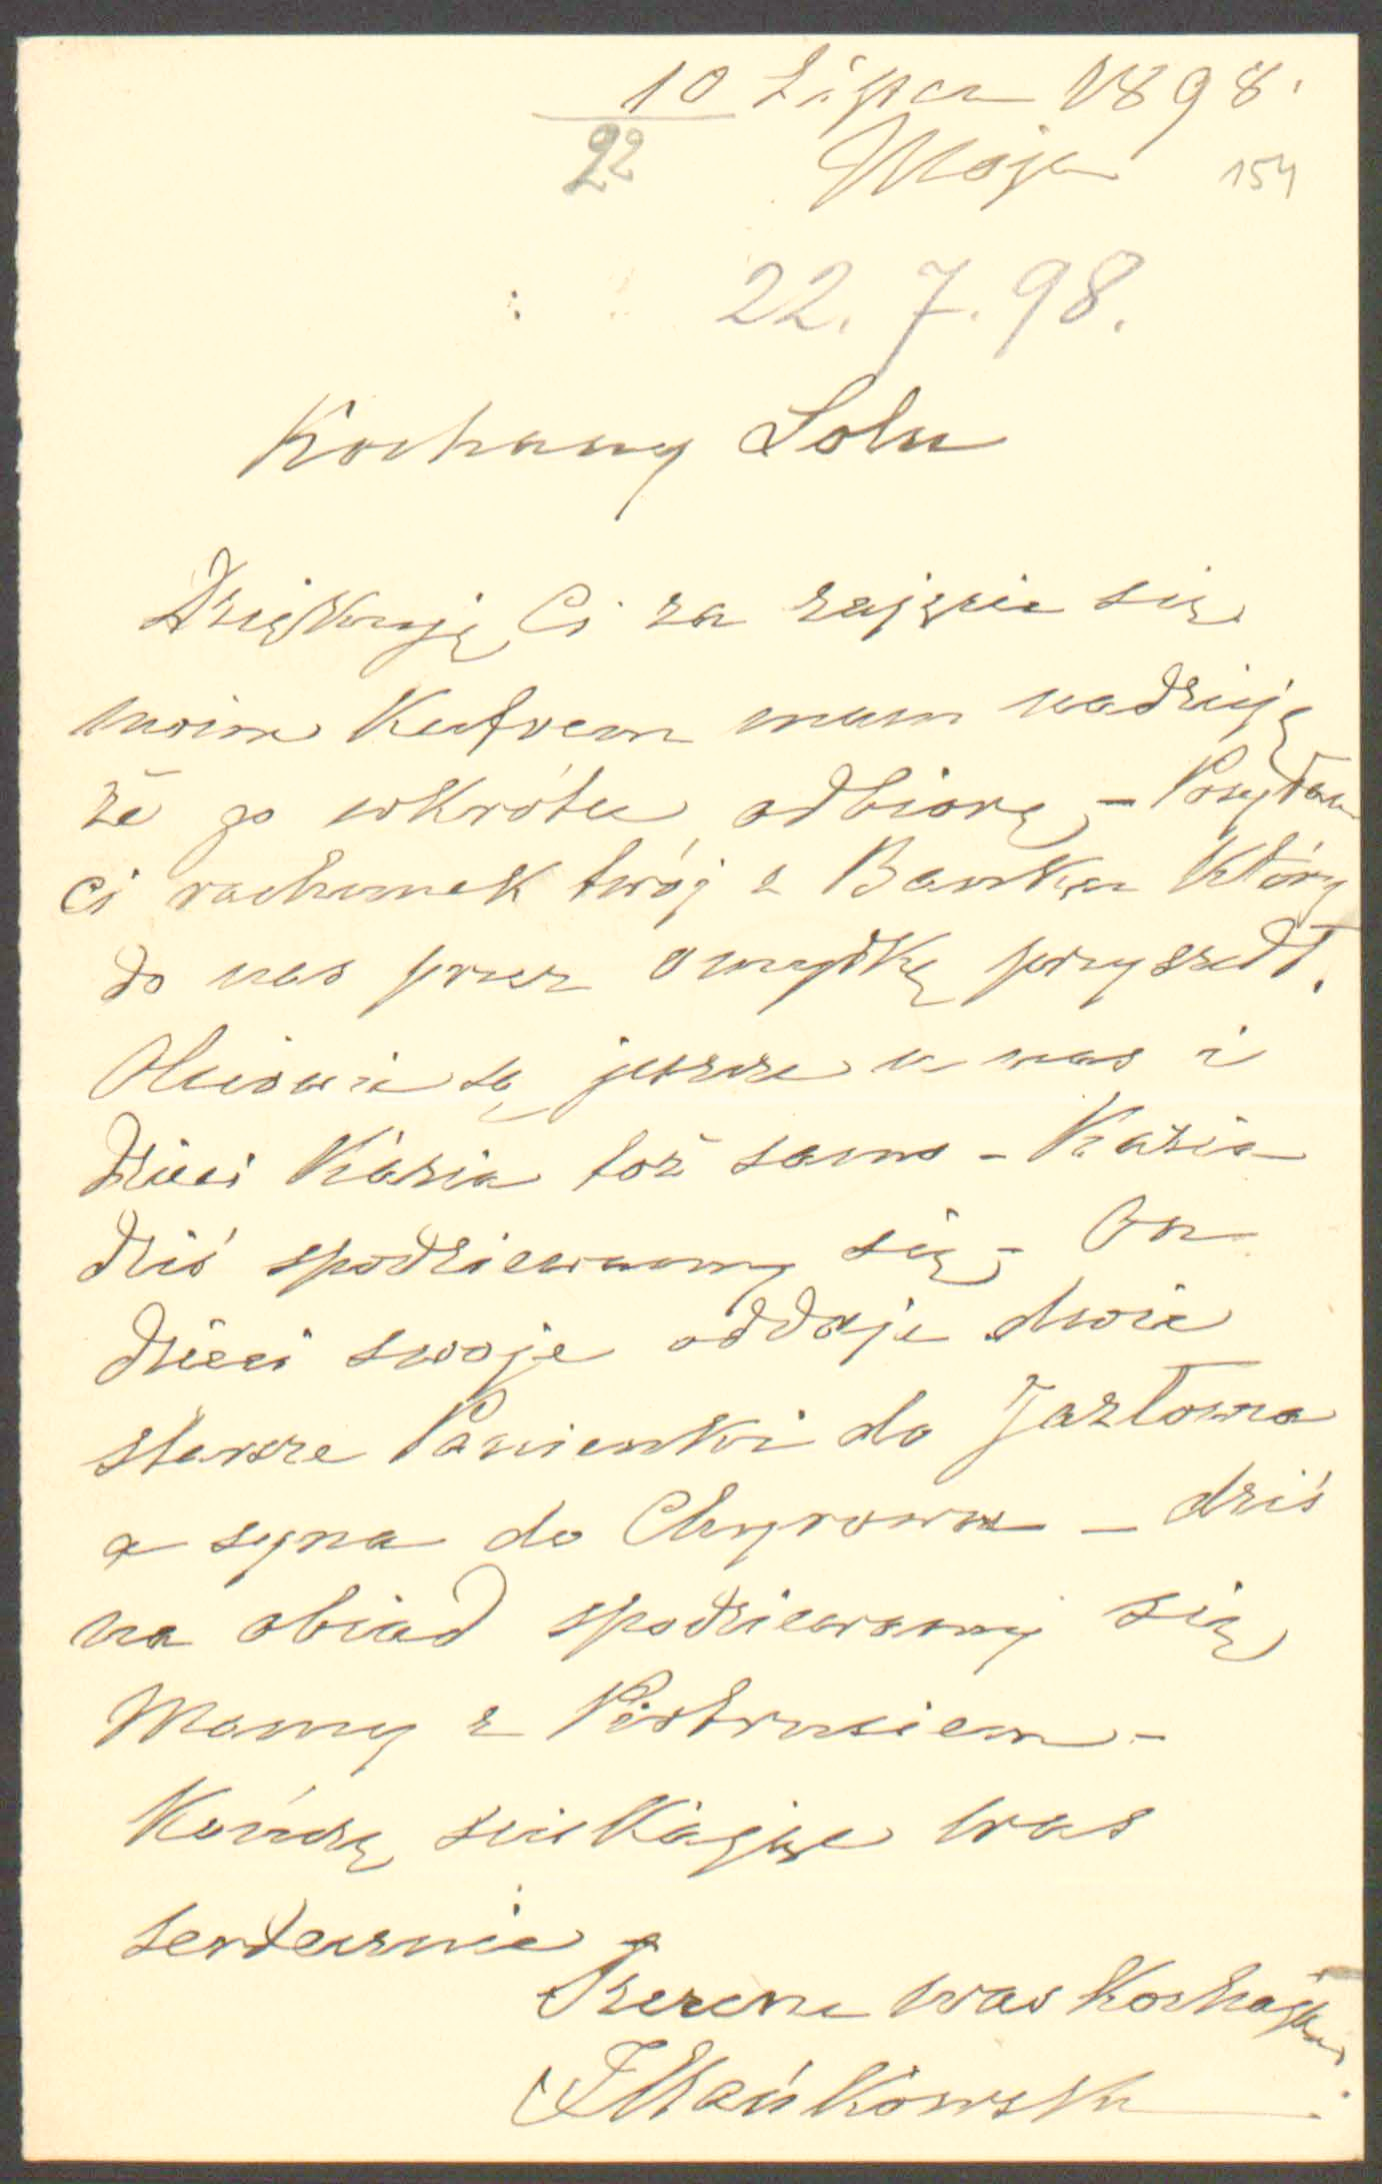 10 Lipca 1898.
22 Moja 154
22. 7. 98.
Kochany Lolu
Dziękuję Ci za zajęcie się
moim Kufrem mam nadzieję
że go wkrótce odbiorę, – Posyłam
Ci rachunek twój z Banku który
do nas przez omyłkę przyszedł.
są jeszcze u nas i
dzieci Kazia toż samo – Kazia
dziś spodziewamy się – On
dzieci swoje oddaje dwie
starsze Panienki do Jazłowca
a syna do Chyrowa – dziś
na obiad spodziewamy się
Mamy z Piotrusiem –
Kończę ściskając was
serdecznie
Szczerze was Kochający
Mańkowski